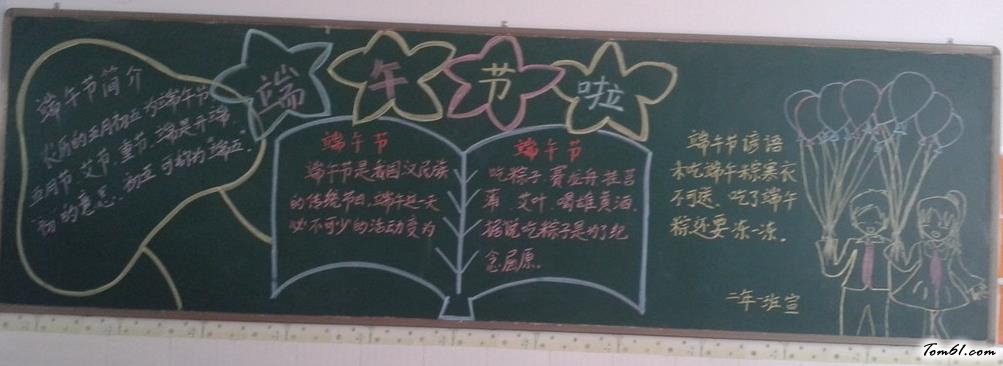 端午节啦
端午节简介
农历的五月初五为端午节
五月节、艾节、重节、端是开端、
初的意思、初五可称为端五.
端午节
端午节是我国汉民族
的传统节日,端午这一天
必不可少的活动变为
端午节
吃粽子,赛龙舟,挂菖
蒲、艾叶、喝雄黄酒.
据说吃粽子是为了纪
念屈原.
端午节谚语
未吃端午粽寒衣
不可送、吃了端午
粽还要冻一冻.
二年一班宣
Tom61.com